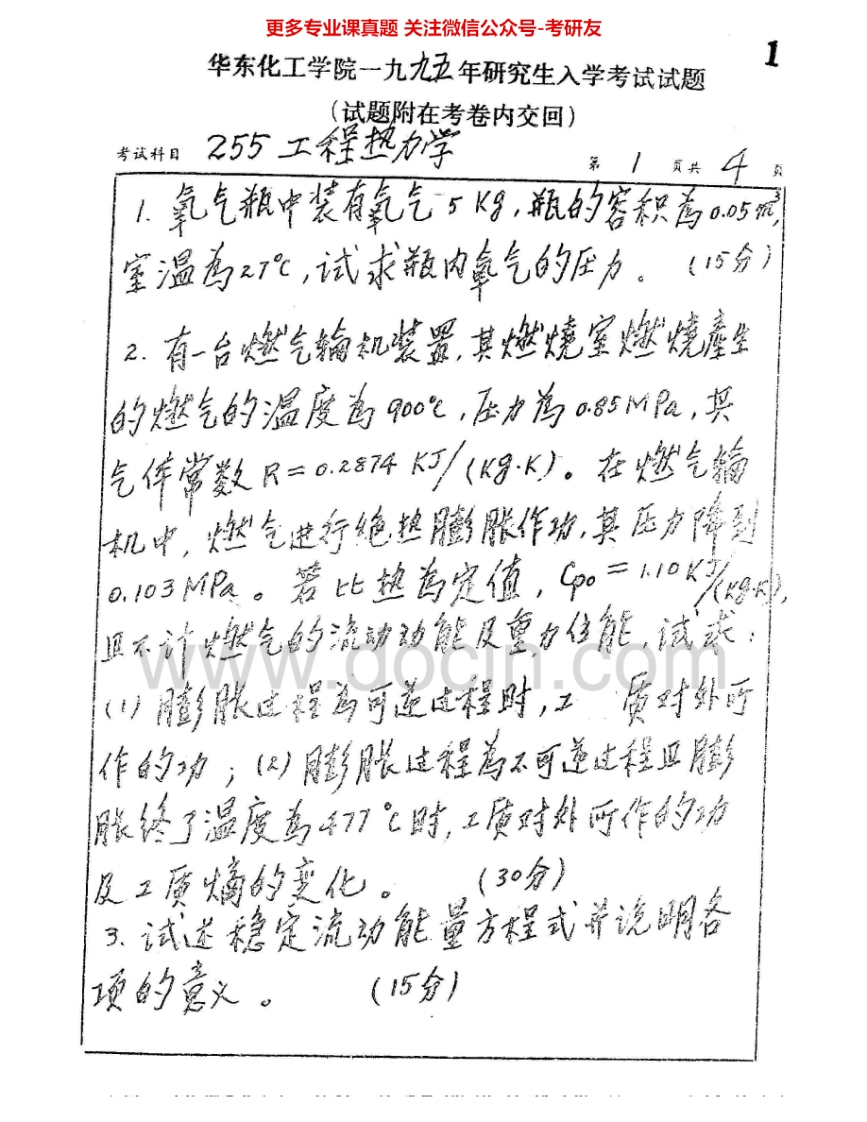 更多专业课真题 关注微信公众号-考研友
1
华东化工学院一九九五年研究生入学考试试题
(试题附在考卷内交回)
考试科目 255 工程热力学 第 1 页共 4 页
1. 氧气瓶中装有氧气 5 Kg,瓶的容积為 0.05 m³,
室温為27℃,试求瓶内氧气的压力。 (15分)
2. 有一台燃气轮机装置,其燃烧室燃烧產生
的燃气的温度為 900℃,压力為 0.85 MPa,其
气体常数 R = 0.2874 KJ/(Kg·K)。在燃气轮
机中,燃气进行绝热膨胀作功,其压力降到
0.103 MPa。若比热為定值,Cpo = 1.10 KJ/(Kg·K),
且不计燃气的流动动能及重力位能,试求:
www.docin.com
(1) 膨胀过程為可逆过程时,工 质对外所
作的功;(2) 膨胀过程為不可逆过程且膨
胀终了温度為477℃时,工质对外所作的功
及工质熵的变化。 (30分)
3. 试述稳定流动能量方程式并说明各
项的意义。 (15分)